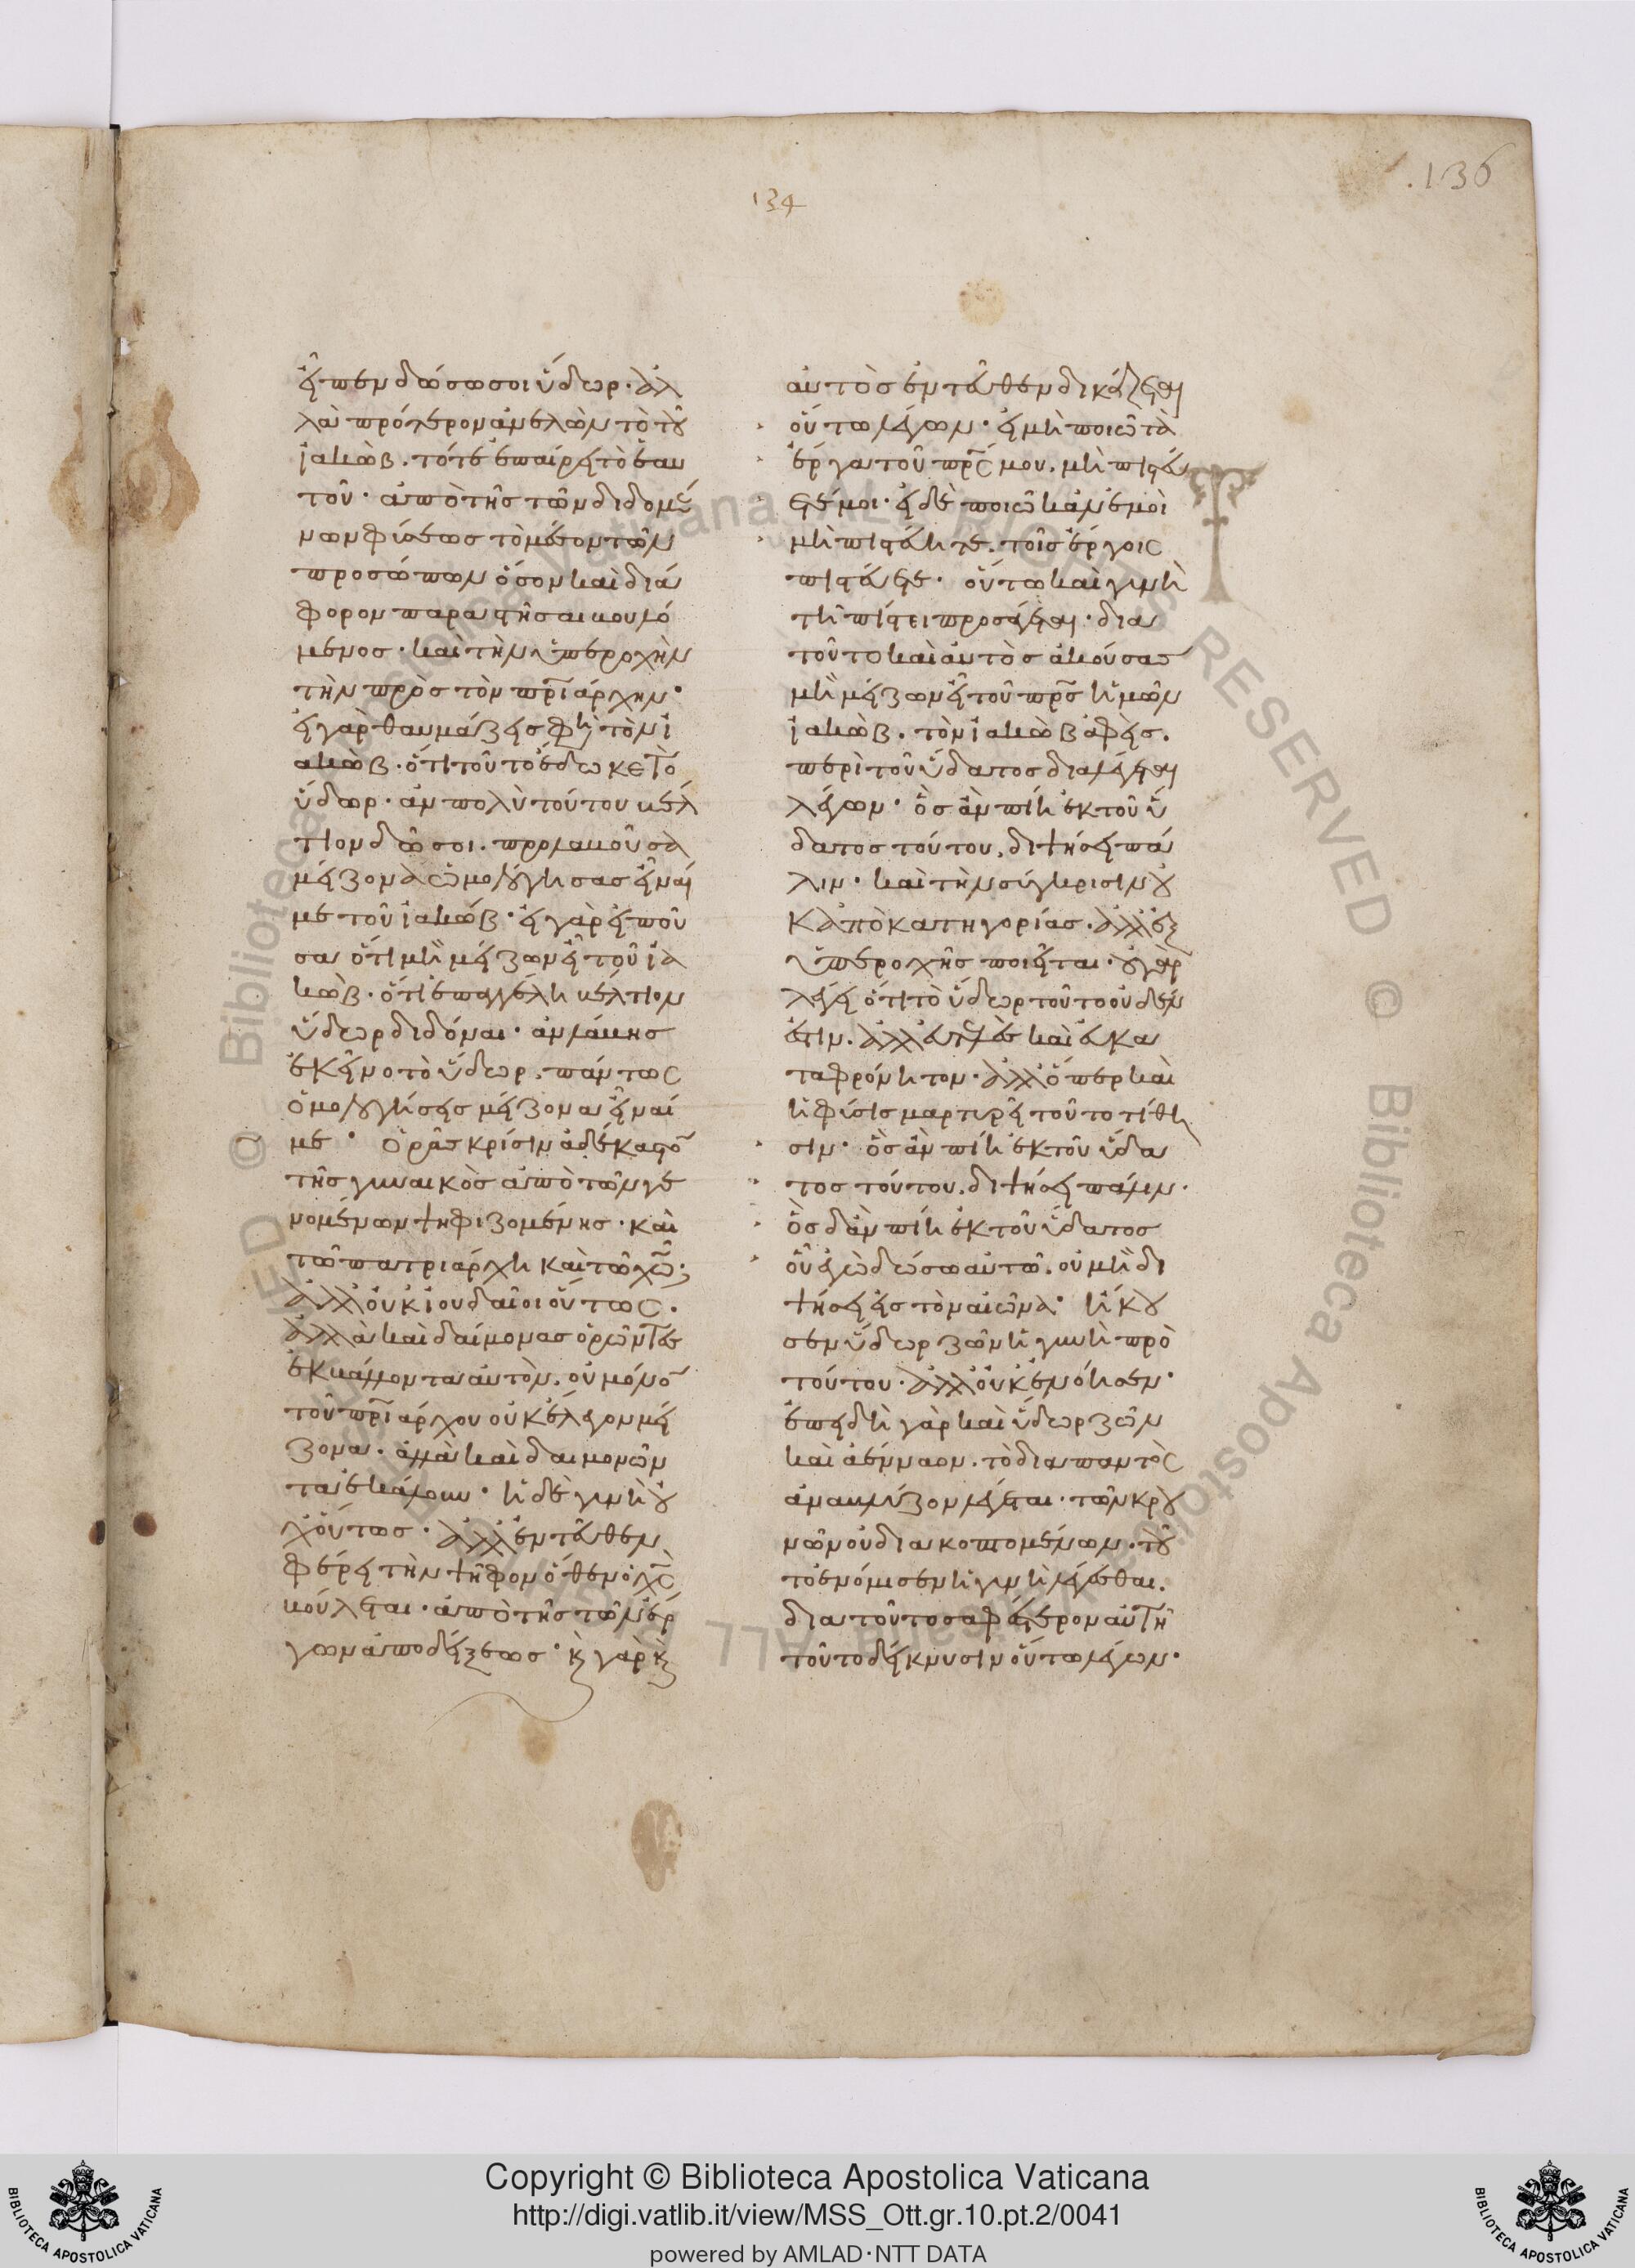 .136
134
εἶπεν δώσω σοι ὕδωρ· ἀλ
λὰ πρότερον ἀνελὼν τὸ τοῦ
ἰακὼβ. τότε ἐπαίρει τὸ ἑαυ
τοῦ· ἀπὸ τῆς τῶν διδομέ
νων φύσεως τὸ μέσον τῶν
προσώπων ὅσον καὶ διά
φορον παραστῆσαι βουλό
μενος· καὶ τὴν ὑπεροχὴν
τὴν πρὸς τὸν πριάρχην·
εἰ γὰρ θαυμάζεις φη τὸν ἰ
ακὼβ· ὅτι τοῦτο ἔδωκε τὸ
ὕδωρ· ἂν πολὺ τούτου βελ
τίον δῶ σοι.
μείζονα ὡμολόγησας εἶναί
με τοῦ ἰακώβ· εἰ γὰρ εἰποῦ
σα ὅτι μὴ μείζων εἶ τοῦ ἰα
κὼβ· ὅτι ἐπαγγέλη βέλτιον
ὕδωρ διδόναι· ἂν λάβης
ἐκεῖνο τὸ ὕδωρ. πάντως
ὁμολογήσεις μείζονα εἶναί
με· ὁρᾶς κρίσιν ἀδέκαστο
τῆς γυναικὸς ἀπὸ τῶν γε
νομένων ψηφιζομένης· καὶ
τῶ πατριάρχη καὶ τῶ χῶ·
ἀλλ οὐκ ἰουδαῖοι οὕτως.
ἀλλὰ καὶ δαίμονας ὁρῶντες
ἐκβάλλοντα αὐτὸν. οὐ μόνο
τοῦ πριάρχου οὐκ ἔλεγον μεί
ζονα· ἀλλὰ καὶ δαιμονῶν
τα ἐκάλουν· ἡ δὲ γυνὴ οὐ
χ οὕτως· ἀλλ ἐντεῦθεν
φέρει τὴν ψῆφον ὅθεν ὁ χς
βούλεται· ἀπὸ τῆς τῶν ἔρ
γων ἀποδείξεως· κ γὰρ κ
αὐτὸς ἐντεῦθεν δικάζεται
οὕτω λέγων· εἰ μὴ ποιῶ τὰ
ἔργα τοῦ πρς μου. μὴ πιστεύ
ετέ μοι· εἰ δὲ ποιῶ κἂν ἐμοὶ
μὴ πιστεύητε. τοῖς ἔργοις
πιστεύετε· οὕτω καὶ γυνὴ
τῆ πίστει προσάγεται· δια
τοῦτο καὶ αὐτὸς ἀκούσας
μὴ μείζων εἶ τοῦ πρς ἡμῶν
ἰακὼβ. τὸν ἰακὼβ ἀφεὶς.
περὶ τοῦ ὕδατος διαλέγεται
λέγων· ὃς ἂν πίη ἐκ τοῦ ὕ
δατος τούτου. διψήσει πά
λιν· καὶ τὴν σύγκρισιν οὐ
κ ἀπὸ κατηγορίας. ἀλλ ἐξ
ὑπεροχῆς ποιεῖται· οὐ γὰρ
λέγει ὅτι τὸ ὕδωρ τοῦτο οὐδέν
ἐστιν. ἀλλ εὐτελὲς καὶ εὐκα
ταφρόνητον· ἀλλ ὅπερ καὶ
ἡ φύσις μαρτυρεῖ τοῦτο τίθη
σιν· ὃς ἂν πίη ἐκ τοῦ ὕδα
τος τούτου. διψήσει πάλιν·
ὃς δ ἂν πίη ἐκ τοῦ ὕδατος
οὗ ἐγὼ δώσω αὐτῶ. οὐ μὴ δι
ψήσει εἰς τὸν αἰῶνα· ἤκου
σεν ὕδωρ ζῶν ἡ γυνὴ πρὸ
τούτου· ἀλλ οὐκ ἐνόησεν·
ἐπειδὴ γὰρ καὶ ὕδωρ ζῶν
καὶ ἀέννaον. τὸ διαπαντὸς
ἀναβλύζον λέγεται· τῶν κρου
νῶν οὐ διακοπτομένων· τοῦ
το ἐνόμισεν ἡ γυνὴ λέγεσθαι.
δια τοῦτο σαφέστερον αὐτῆ
τοῦτο δείκνυσιν οὕτω λέγων·
Copyright © Biblioteca Apostolica Vaticana
http://digi.vatlib.it/view/MSS_Ott.gr.10.pt.2/0041
powered by AMLAD·NTT DATA
BIBLIOTECA APOSTOLICA VATICANA
BIBLIOTECA APOSTOLICA VATICANA